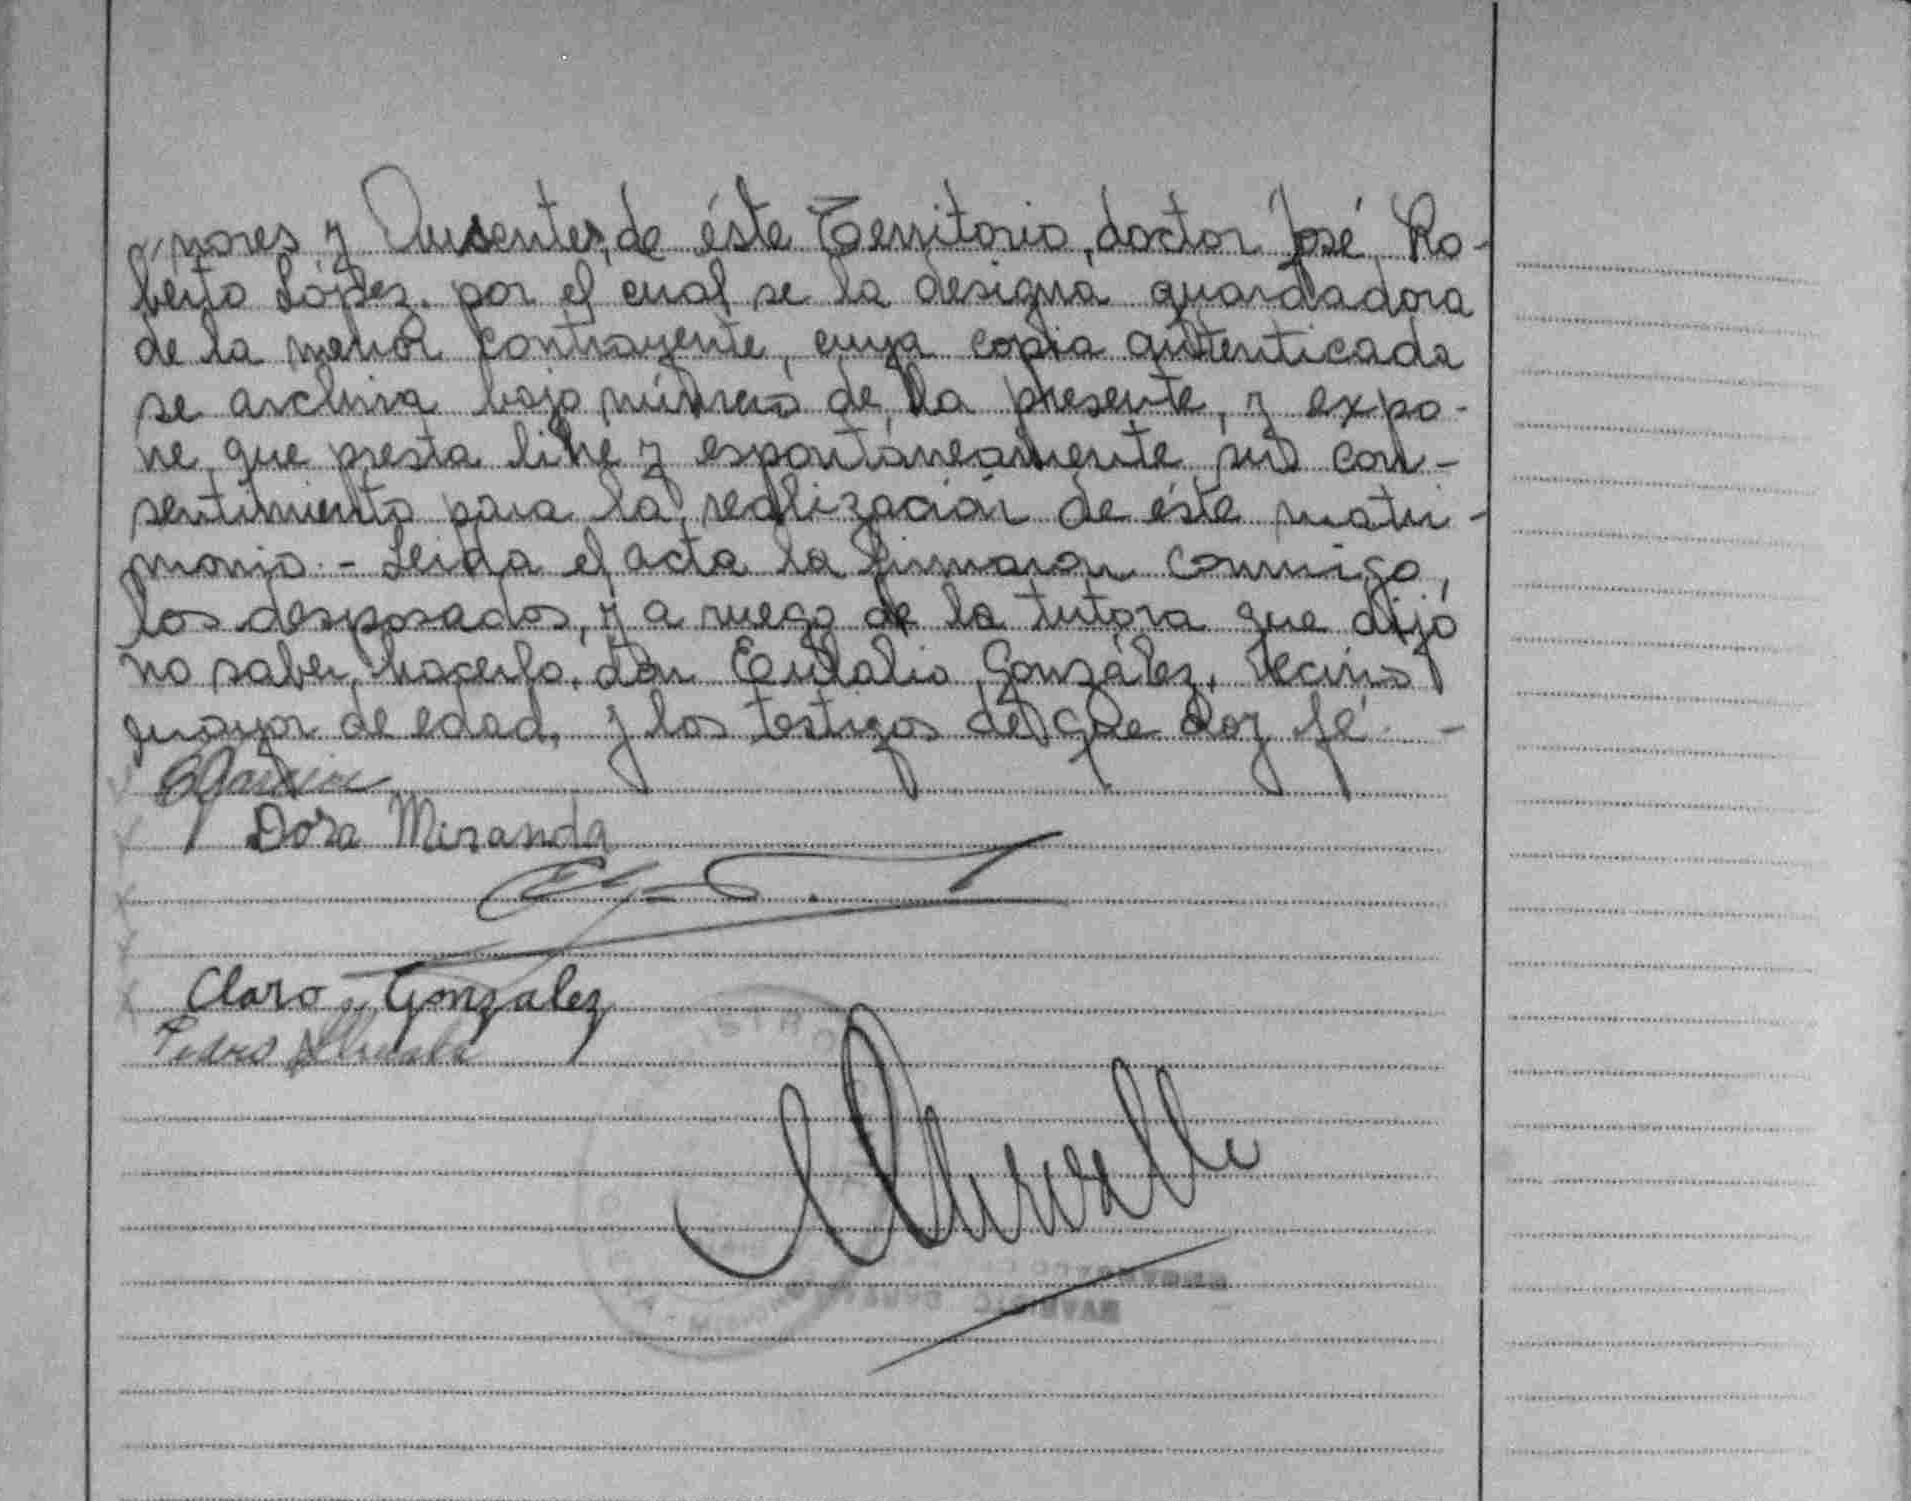 nores y Ausentes, de éste Territorio, doctor José Ro-
berto López. por el cual se la designa guardadora
de la menor contrayente, cuya copia autenticada
se archiva bajo número de la presente, y expo-
ne, que presta libre y espontáneamente su con-
sentimiento para la realización de éste matri-
monio.- Leida el acta la firmaron conmigo,
los desposados, y a ruego de la tutora que dijó
no saber hacerlo, don Eulalio González, vecino
mayor de edad, y los testigos de que doy fé. -
Dora Miranda
Claro Gonzalez
Pedro